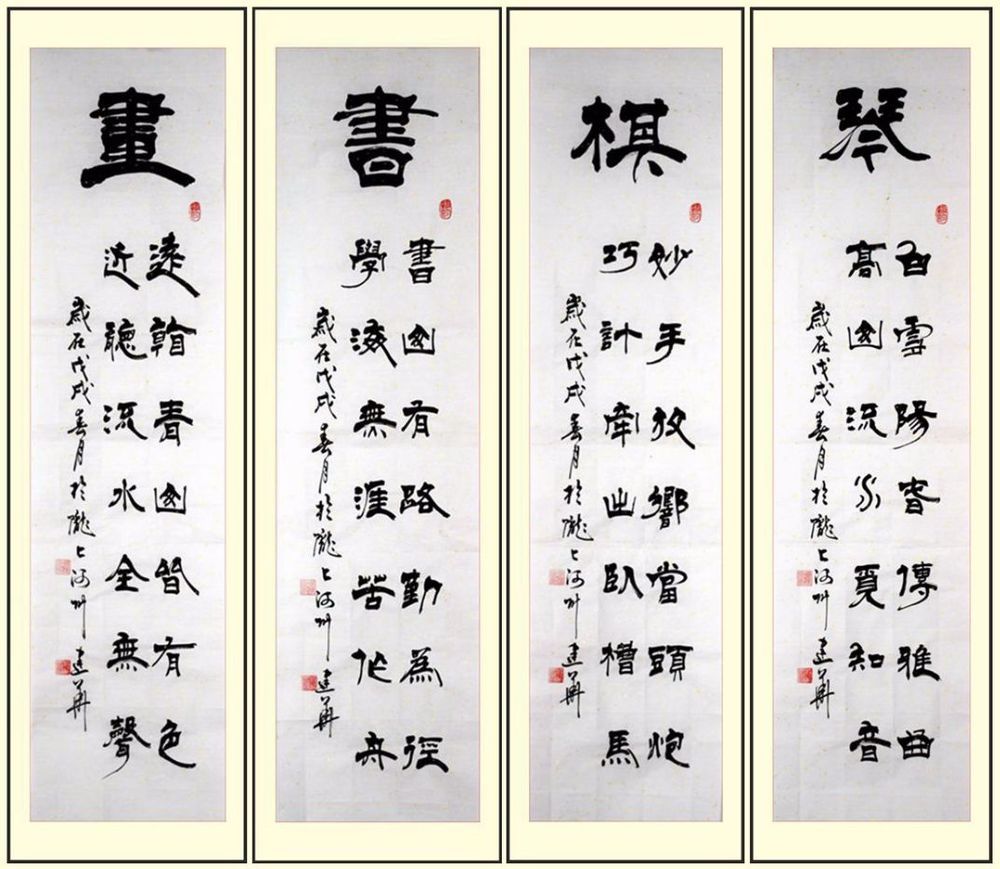 琴
白雪陽春傳雅曲
高山流水覓知音
歲在戊戌春月於隴上河州建華
棋
妙手放響當頭炮
巧計牽出臥槽馬
歲在戊戌春月於隴上河州建華
書
書山有路勤為徑
學海無涯苦作舟
歲在戊戌春月於隴上河州建華
畫
遠青山皆有色
近聽流水全無聲
歲在戊戌春月於隴上河州建華